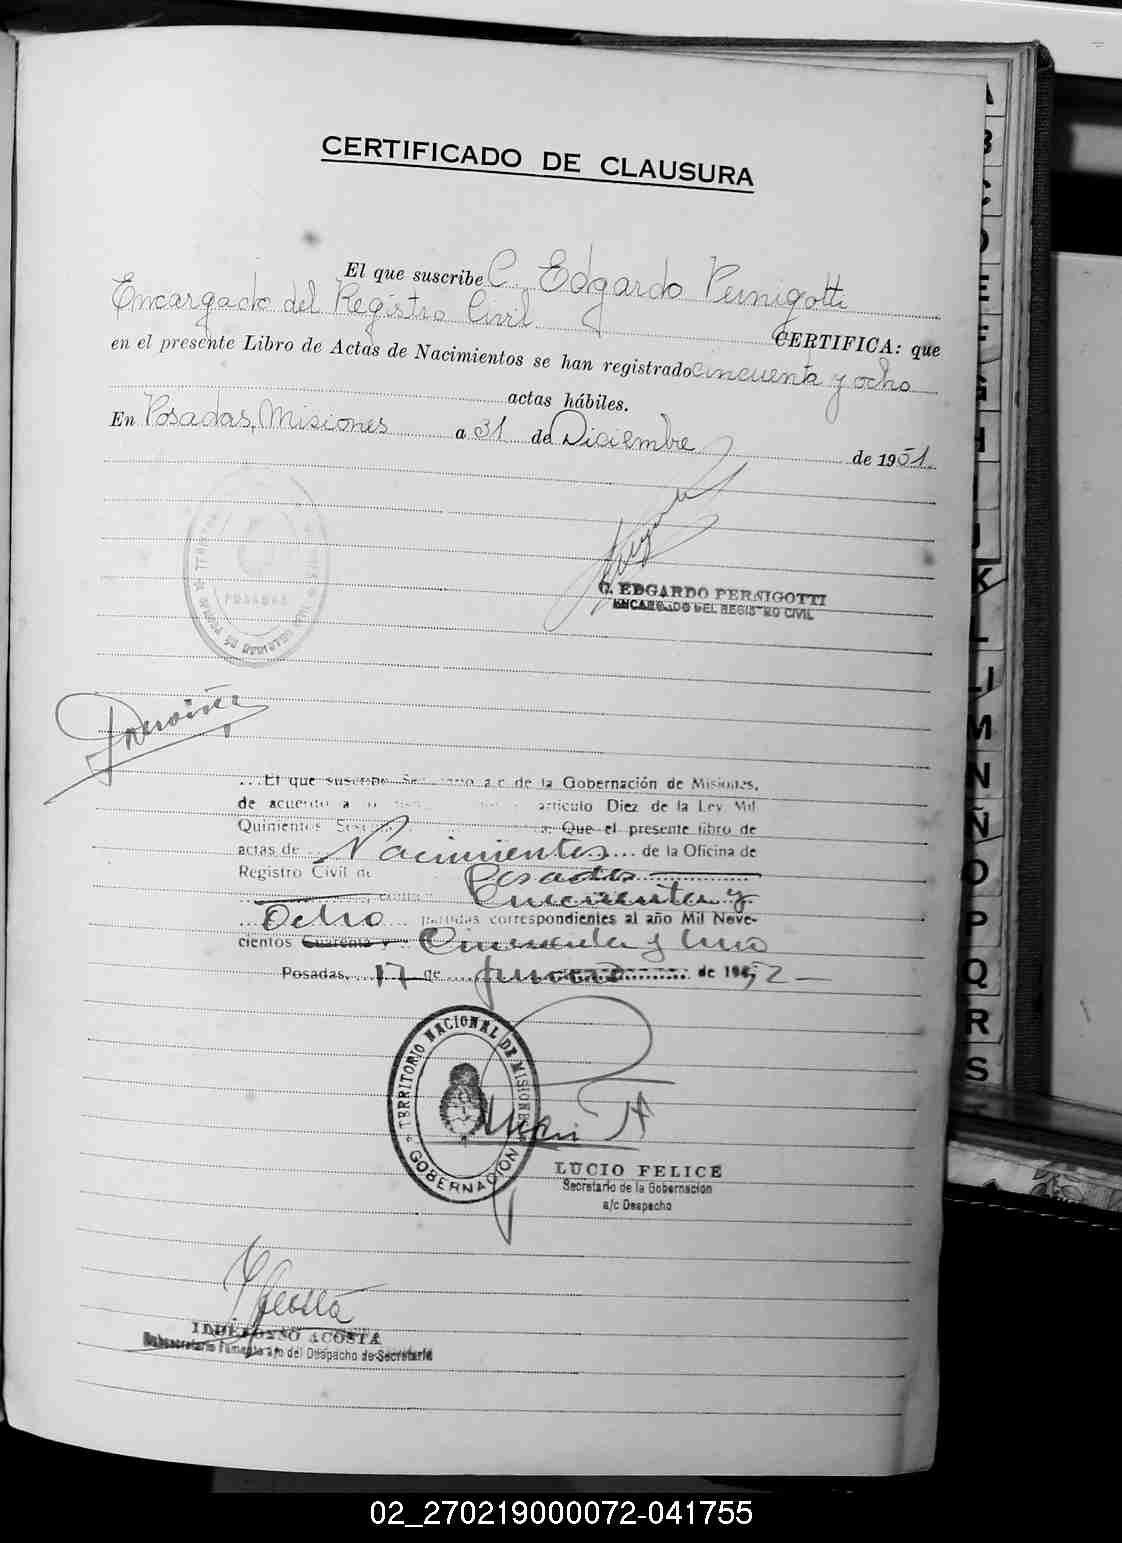 CERTIFICADO DE CLAUSURA
El que suscribe C. Edgardo Pernigotti
Encargado del Registro Civil CERTIFICA: que
en el presente Libro de Actas de Nacimientos se han registrado cincuenta y ocho
actas hábiles.
En Posadas, Misiones a 31 de Diciembre de 1951.
POSADAS
C. EDGARDO PERNIGOTTI
ENCARGADO DEL REGISTRO CIVIL
...El que suscribe a/c de la Gobernación de Misiones,
de acuerdo a artículo Diez de la Ley Mil
Quinientos Que el presente libro de
actas de Nacimientos de la Oficina de
Registro Civil de Posadas
Cincuenta y
Ocho partidas correspondientes al año Mil Nove-
cientos Cuarenta y Cincuenta y Uno
Posadas, 17 de de 1952
TERRITORIO NACIONAL DE MISIONES
GOBERNACION
LUCIO FELICE
Secretario de la Gobernación
a/c Despacho
ILDEFONSO ACOSTA
Subsecretario Fomento a/c del Despacho de Secretaría
A
B
C
D
E
F
G
H
I
J
K
L
LL
M
N
Ñ
O
P
Q
R
S
02_270219000072-041755